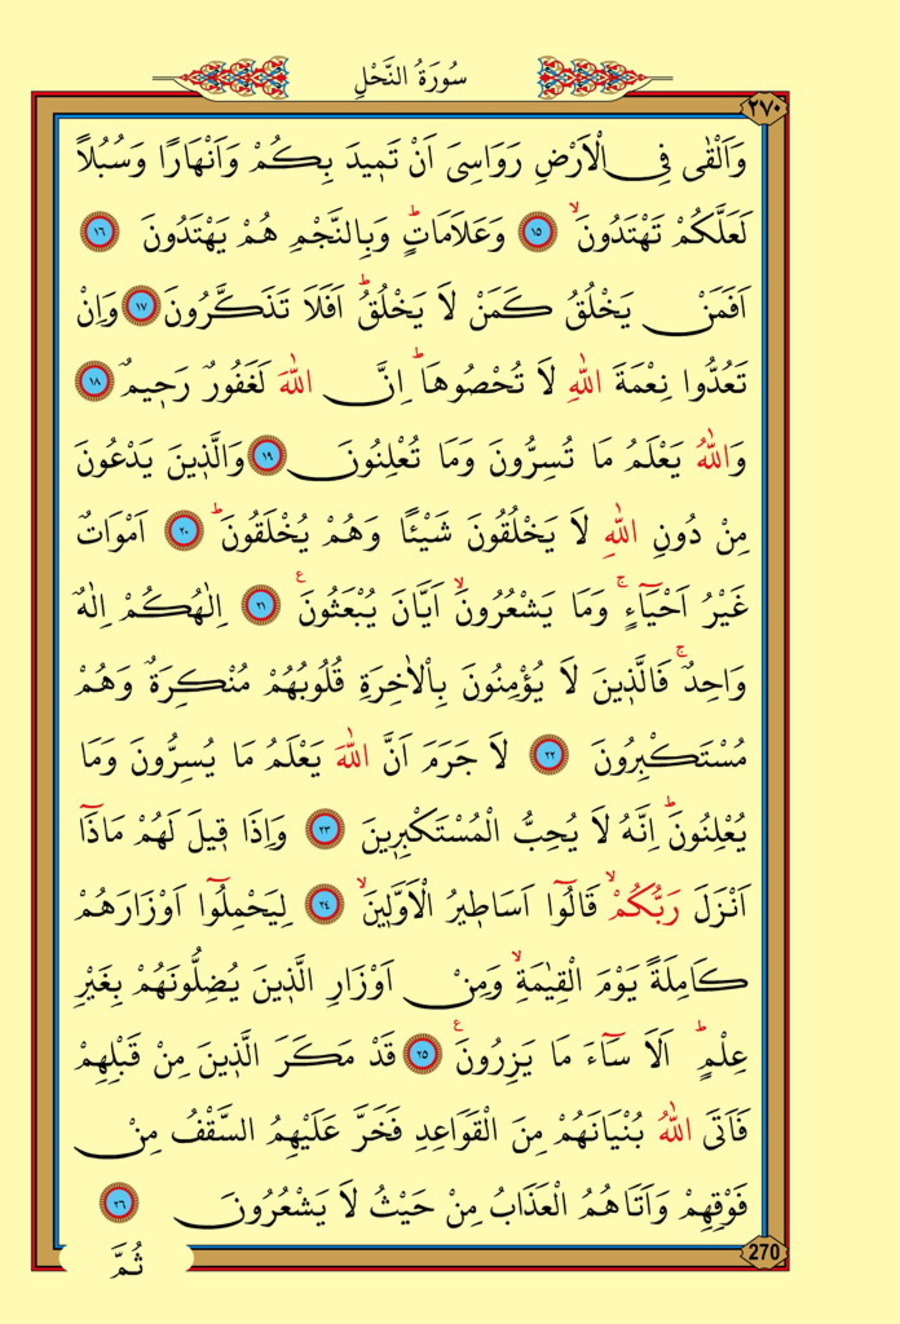 سُورَةُ النَّحْلِ
٢٧٠
وَاَلْقٰى فِي الْاَرْضِ رَوَاسِىَ اَنْ تَم۪يدَ بِكُمْ وَاَنْهَارًا وَسُبُلًا
لَعَلَّكُمْ تَهْتَدُونَۙ ١٥ وَعَلَامَاتٍۜ وَبِالنَّجْمِ هُمْ يَهْتَدُونَ ١٦
اَفَمَنْ يَخْلُقُ كَمَنْ لَا يَخْلُقُۜ اَفَلَا تَذَكَّرُونَ ١٧ وَاِنْ
تَعُدُّوا نِعْمَةَ اللّٰهِ لَا تُحْصُوهَاۜ اِنَّ اللّٰهَ لَغَفُورٌ رَح۪يمٌ ١٨
وَاللّٰهُ يَعْلَمُ مَا تُسِرُّونَ وَمَا تُعْلِنُونَ ١٩ وَالَّذ۪ينَ يَدْعُونَ
مِنْ دُونِ اللّٰهِ لَا يَخْلُقُونَ شَيْئًا وَهُمْ يُخْلَقُونَۜ ٢٠ اَمْوَاتٌ
غَيْرُ اَحْيَٓاءٍۚ وَمَا يَشْعُرُونَۙ اَيَّانَ يُبْعَثُونَ۟ ٢١ اِلٰهُكُمْ اِلٰهٌ
وَاحِدٌۚ فَالَّذ۪ينَ لَا يُؤْمِنُونَ بِالْاٰخِرَةِ قُلُوبُهُمْ مُنْكِرَةٌ وَهُمْ
مُسْتَكْبِرُونَ ٢٢ لَا جَرَمَ اَنَّ اللّٰهَ يَعْلَمُ مَا يُسِرُّونَ وَمَا
يُعْلِنُونَۜ اِنَّهُ لَا يُحِبُّ الْمُسْتَكْبِر۪ينَ ٢٣ وَاِذَا ق۪يلَ لَهُمْ مَاذَٓا
اَنْزَلَ رَبُّكُمْۙ قَالُٓوا اَسَاط۪يرُ الْاَوَّل۪ينَۙ ٢٤ لِيَحْمِلُٓوا اَوْزَارَهُمْ
كَامِلَةً يَوْمَ الْقِيٰمَةِۙ وَمِنْ اَوْزَارِ الَّذ۪ينَ يُضِلُّونَهُمْ بِغَيْرِ
عِلْمٍۜ اَلَا سَٓاءَ مَا يَزِرُونَ۟ ٢٥ قَدْ مَكَرَ الَّذ۪ينَ مِنْ قَبْلِهِمْ
فَاَتَى اللّٰهُ بُنْيَانَهُمْ مِنَ الْقَوَاعِدِ فَخَرَّ عَلَيْهِمُ السَّقْفُ مِنْ
فَوْقِهِمْ وَاَتَاهُمُ الْعَذَابُ مِنْ حَيْثُ لَا يَشْعُرُونَ ٢٦
270
ثُمَّ